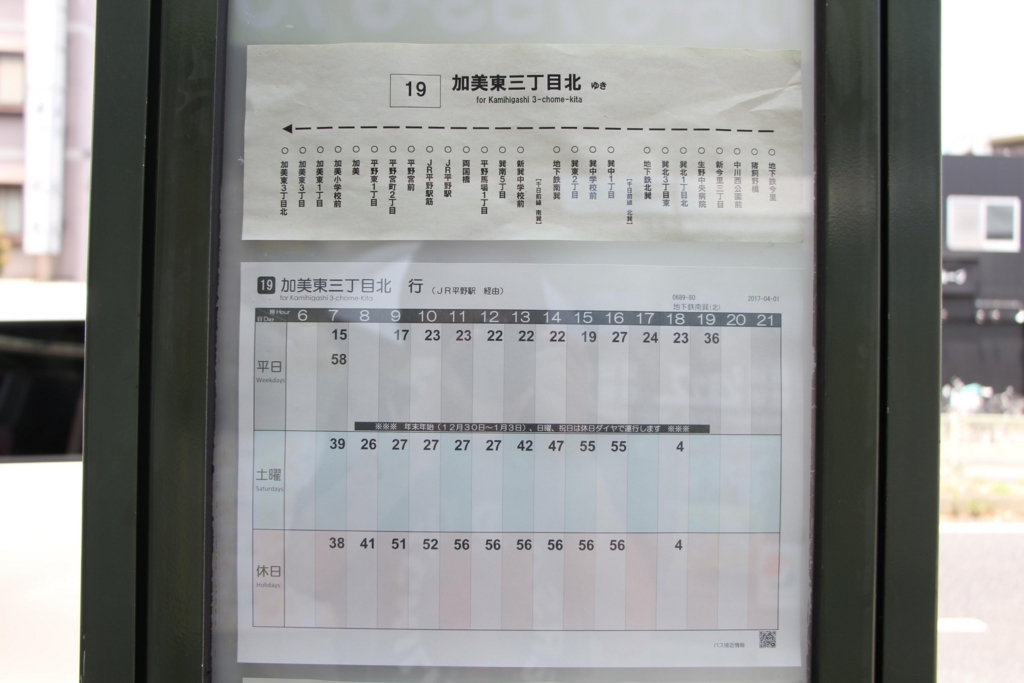 19
加美東三丁目北 ゆき
for Kamihigashi 3-chome-kita
加美東3丁目北
加美東3丁目
加美東1丁目
加美小学校前
加美
平野東1丁目
平野宮町2丁目
平野宮前
JR平野駅筋
JR平野駅
両国橋
平野馬場1丁目
巽南5丁目
新巽中学校前
【千日前線 南巽】
地下鉄南巽
巽東2丁目
巽中学校前
巽中1丁目
【千日前線 北巽】
地下鉄北巽
巽北3丁目東
巽北1丁目北
生野中央病院
新今里三丁目
中川西公園前
猪飼野橋
地下鉄今里
19 加美東三丁目北 行 (JR平野駅 経由)
for Kamihigashi 3-chome-Kita
0689-80 2017-04-01
地下鉄南巽(北)
時Hour 日Day 6 7 8 9 10 11 12 13 14 15 16 17 18 19 20 21
平日 Weekdays
15 17 23 23 22 22 22 19 27 24 23 36
58
※※※ 年末年始(12月30日~1月3日)、日曜、祝日は休日ダイヤで運行します ※※※
土曜 Saturdays
39 26 27 27 27 27 42 47 55 55 4
休日 Holidays
38 41 51 52 56 56 56 56 56 56 4
バス接近情報